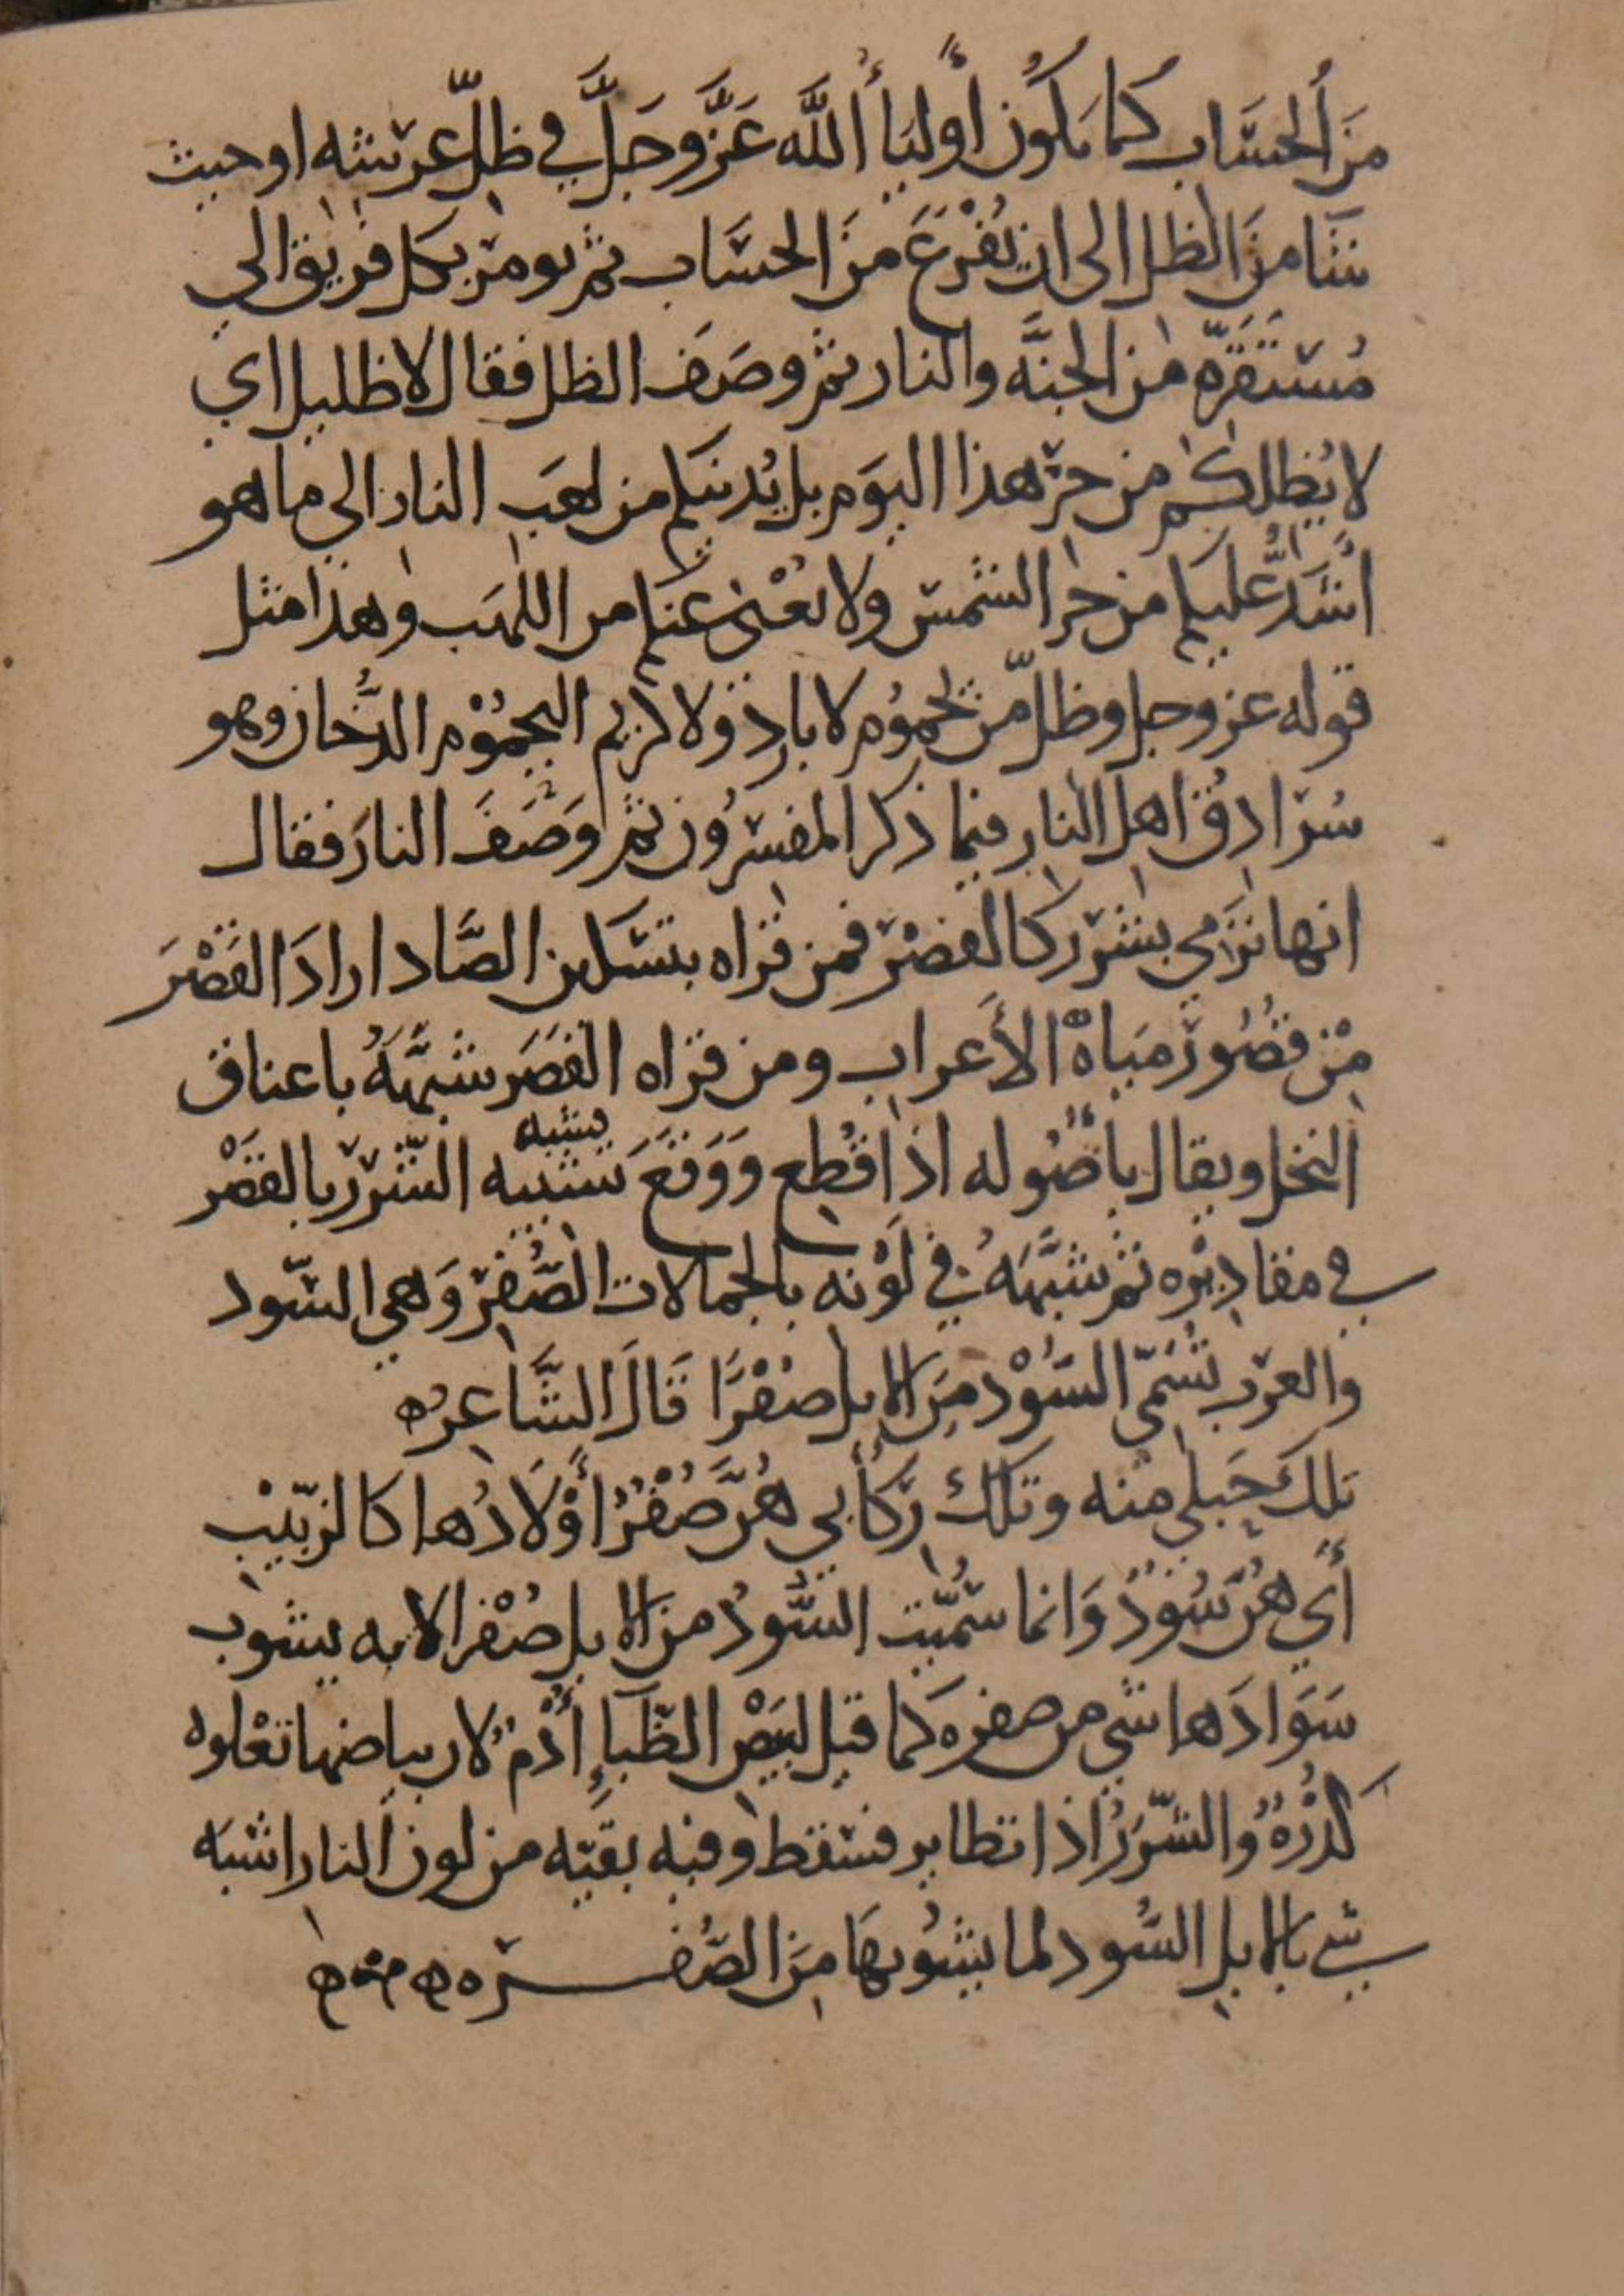 مِنَ الحسَاب كُما يكُون أوليَاُ اللَّه عَزَّ وجَلَّ في ظلّ عرشه او حيث
شَا مِنَ الظل الى ان يُفْرَغَ منَ الحسَاب ثم يومر بكل فريق الى
مُستقَرّه من الجنَّه والنار ثم وصَف الظل فقال لا ظليل اي
لا يُظلكم من حرّ هذا اليوَم بل يُدنيكم من لهَب النار الى ما هو
اشَدُّ عليكم من حر الشمس ولا يُغْنى عنكم من اللهَب وهذا مثل
قوله عز وجل وظلّ من يحموُم لا بارد ولا كريم اليحمُوْم الدُّخان وهو
سُرادقُ اهل النار فيما ذكر المفسرُون ثم وَصَفَ النارَ فقال
انها تَرْمي بشرر كالقصْر فمن قراه بتسكين الصَّاد ارادَ القَصْرَ
مِنْ قصُور مَياهْ الأَعراب ومن قراه القَصَر شبَّهَهُ باعناق
النخل ويقال بأصُوله اذا قُطِع وَوَقعَ تشبيه الشّرر بالقصْر
تشبيه
في مقاديْره ثم شبَّهَهُ في لَوْنه بالجمالات الصُّفْر وَهي السّود
والعرَب تُسَمّى السّوْد مِنَ الابل صُفْرًا قَالَ الشَّاعِرُ ه
تلكَ خَيلي منه وتلكَ ركَأبي هُنَّ صُفْرُ أوْلَادُها كالزّبيْب
أي هُنَّ سُودُ وَانما سُمّيت السُّودُ من الابل صُفْرا لانه يشوب
سَوَادَها شي من صفره كَما قيل لبيْض الظّبَاءِ أُدْمٌ لان بياضها تعْلوه
كدْرهُ والشّرَرُ اذا تطاير فسقط وفيه بقيّه من لون النار اشبَه
شي بالابل السُّود لما يشوُبهَا مِنَ الصُّفره ه ه